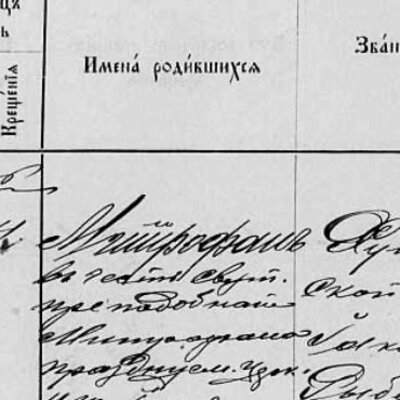 Крещенїя
Имена́ роди́вшихся
Зва́н
Митрофанъ
въ честь свят.
преподобнаго
Митрофана
празднуем. церк.
Ху
ской